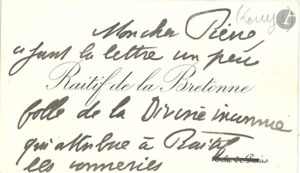 Mon cher René
ci-joint la lettre un peu
Raitif de la Bretonne
folle de la Divine inconnue
qui attribue à Raitif
les conneries